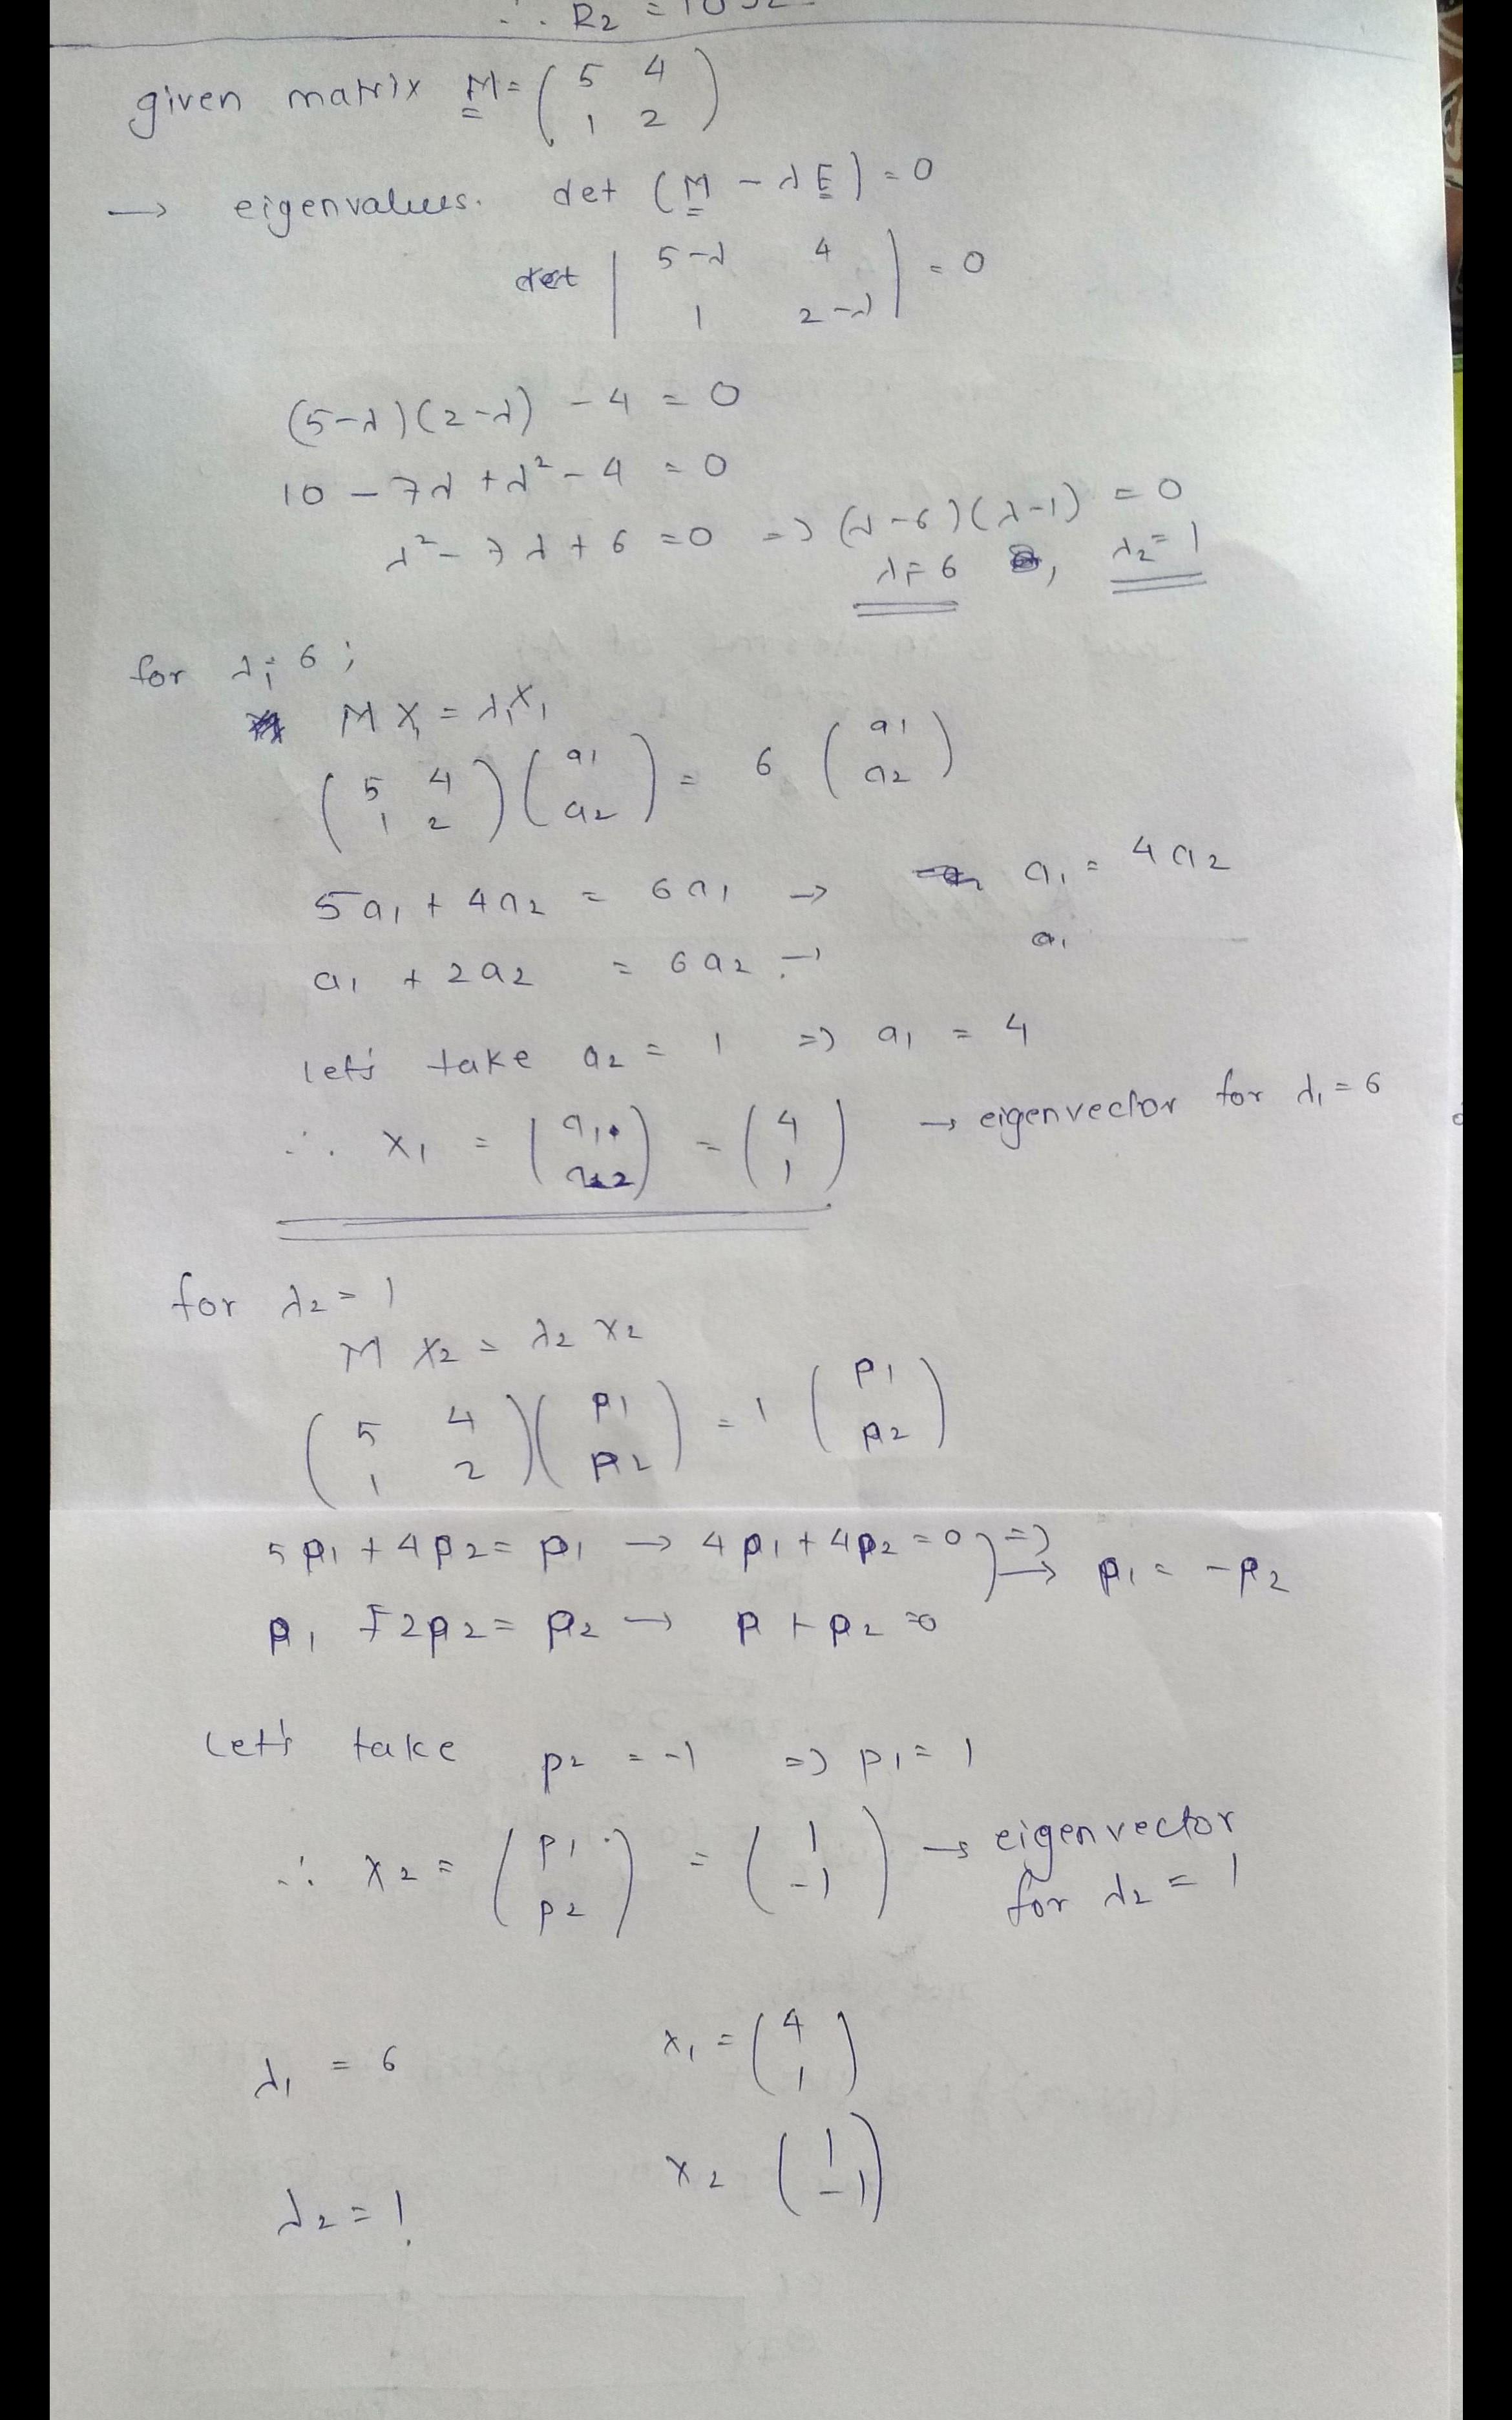 ∴ R₂ = 10 Ω
given matrix M = ( 5 4
1 2 )
→ eigenvalues. det (M - λE) = 0
det | 5-λ 4
1 2-λ | = 0
(5-λ)(2-λ) - 4 = 0
10 - 7λ + λ² - 4 = 0
λ² - 7λ + 6 = 0 => (λ-6)(λ-1) = 0
λ₁=6 , λ₂=1
for λ₁=6 ;
M X₁ = λ₁X₁
( 5 4
1 2 ) ( a₁
a₂ ) = 6 ( a₁
a₂ )
5a₁ + 4a₂ = 6a₁ → a₁ = 4a₂
a₁ + 2a₂ = 6a₂ → a₁
let's take a₂ = 1 => a₁ = 4
∴ X₁ = ( a₁
a₂ ) = ( 4
1 ) → eigenvector for λ₁=6
for λ₂ = 1
M X₂ = λ₂ X₂
( 5 4
1 2 ) ( p₁
p₂ ) = 1 ( p₁
p₂ )
5p₁ + 4p₂ = p₁ → 4p₁ + 4p₂ = 0 ) =>
→ p₁ = -p₂
p₁ + 2p₂ = p₂ → p + p₂ = 0
Let's take p₂ = -1 => p₁ = 1
∴ X₂ = ( p₁
p₂ ) = ( 1
-1 ) → eigenvector
for λ₂ = 1
λ₁ = 6 X₁ = ( 4
1 )
λ₂ = 1 X₂ ( 1
-1 )